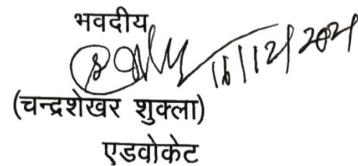 भवदीय
16/12/2021
(चन्द्रशेखर शुक्ला)
एडवोकेट